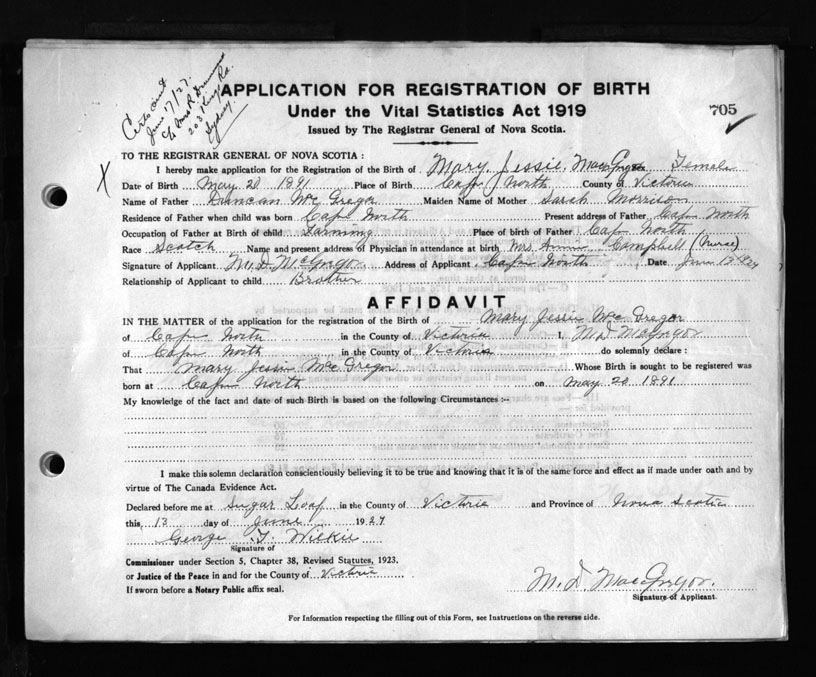 Certs sent
June 17/27.
c/o Mrs R.
203 Kings Rd.
Sydney.
APPLICATION FOR REGISTRATION OF BIRTH
Under the Vital Statistics Act 1919
705
Issued by The Registrar General of Nova Scotia.
TO THE REGISTRAR GENERAL OF NOVA SCOTIA:
X
I hereby make application for the Registration of the Birth of Mary Jessie MacGregor Female
Date of Birth May 20 1891 Place of Birth Cape North County of Victoria
Name of Father Duncan McGregor Maiden Name of Mother Sarah Morrison
Residence of Father when child was born Cape North Present address of Father Cape North
Occupation of Father at Birth of child Farming Place of birth of Father Cape North
Race Scotch Name and present address of Physician in attendance at birth Mrs Annie Campbell (Nurse)
Signature of Applicant M. D. McGregor Address of Applicant Cape North Date June 13 1927
Relationship of Applicant to child Brother
AFFIDAVIT
IN THE MATTER of the application for the registration of the Birth of Mary Jessie McGregor
of Cape North in the County of Victoria I, M. D. McGregor
of Cape North in the County of Victoria do solemnly declare:
That Mary Jessie McGregor Whose Birth is sought to be registered was
born at Cape North on May 20 1891
My knowledge of the fact and date of such Birth is based on the following Circumstances:-
I make this solemn declaration conscientiously believing it to be true and knowing that it is of the same force and effect as if made under oath and by
virtue of The Canada Evidence Act.
Declared before me at Sugar Loaf in the County of Victoria and Province of Nova Scotia
this, 13 day of June 1927
George F. Wilkie
Signature of
Commissioner under Section 5, Chapter 38, Revised Statutes, 1923.
or Justice of the Peace in and for the County of Victoria
If sworn before a Notary Public affix seal.
M. D. MacGregor.
Signature of Applicant.
For Information respecting the filling out of this Form, see Instructions on the reverse side.